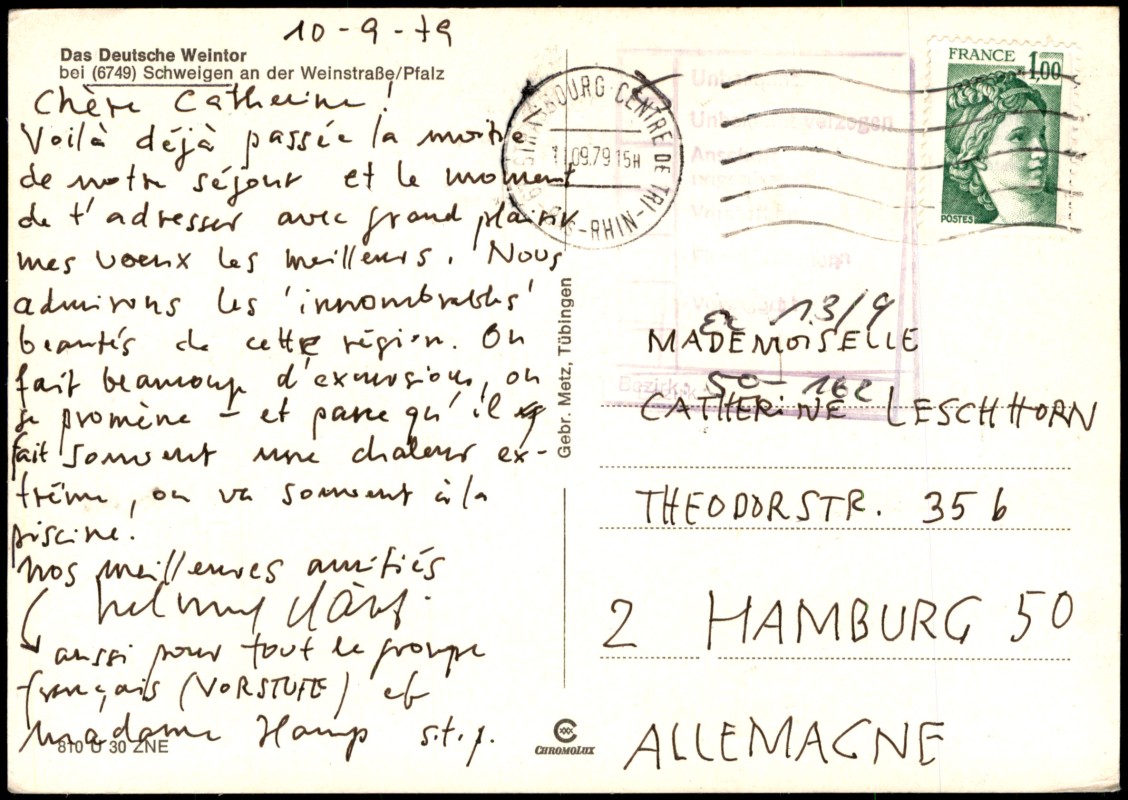 10-9-79
Das Deutsche Weintor
bei (6749) Schweigen an der Weinstraße/Pfalz
Chère Catherine!
Voilà déjà passée la moitié
de notre séjour et le moment
de t'adresser avec grand plaisir
mes voeux les meilleurs. Nous
admirons les 'innombrables'
beautés de cette région. On
fait beaucoup d'excursions, on
se promène - et parce qu'il
fait souvent une chaleur ex-
trême, on va souvent à la
piscine.
Nos meilleures amitiés
aussi pour tout le groupe
français (VORSTUFE) et
Madame Hamp s.t.p.
810 U 30 ZNE
Gebr. Metz, Tübingen
CHROMOLUX
STRASBOURG-CENTRE DE TRI
-RHIN-
11.09.79 15H
FRANCE 1,00
POSTES
Unbekannt verzogen
13/9
50-162
MADEMOISELLE
CATHERINE LESCHHORN
THEODORSTR. 35 b
2 HAMBURG 50
ALLEMAGNE